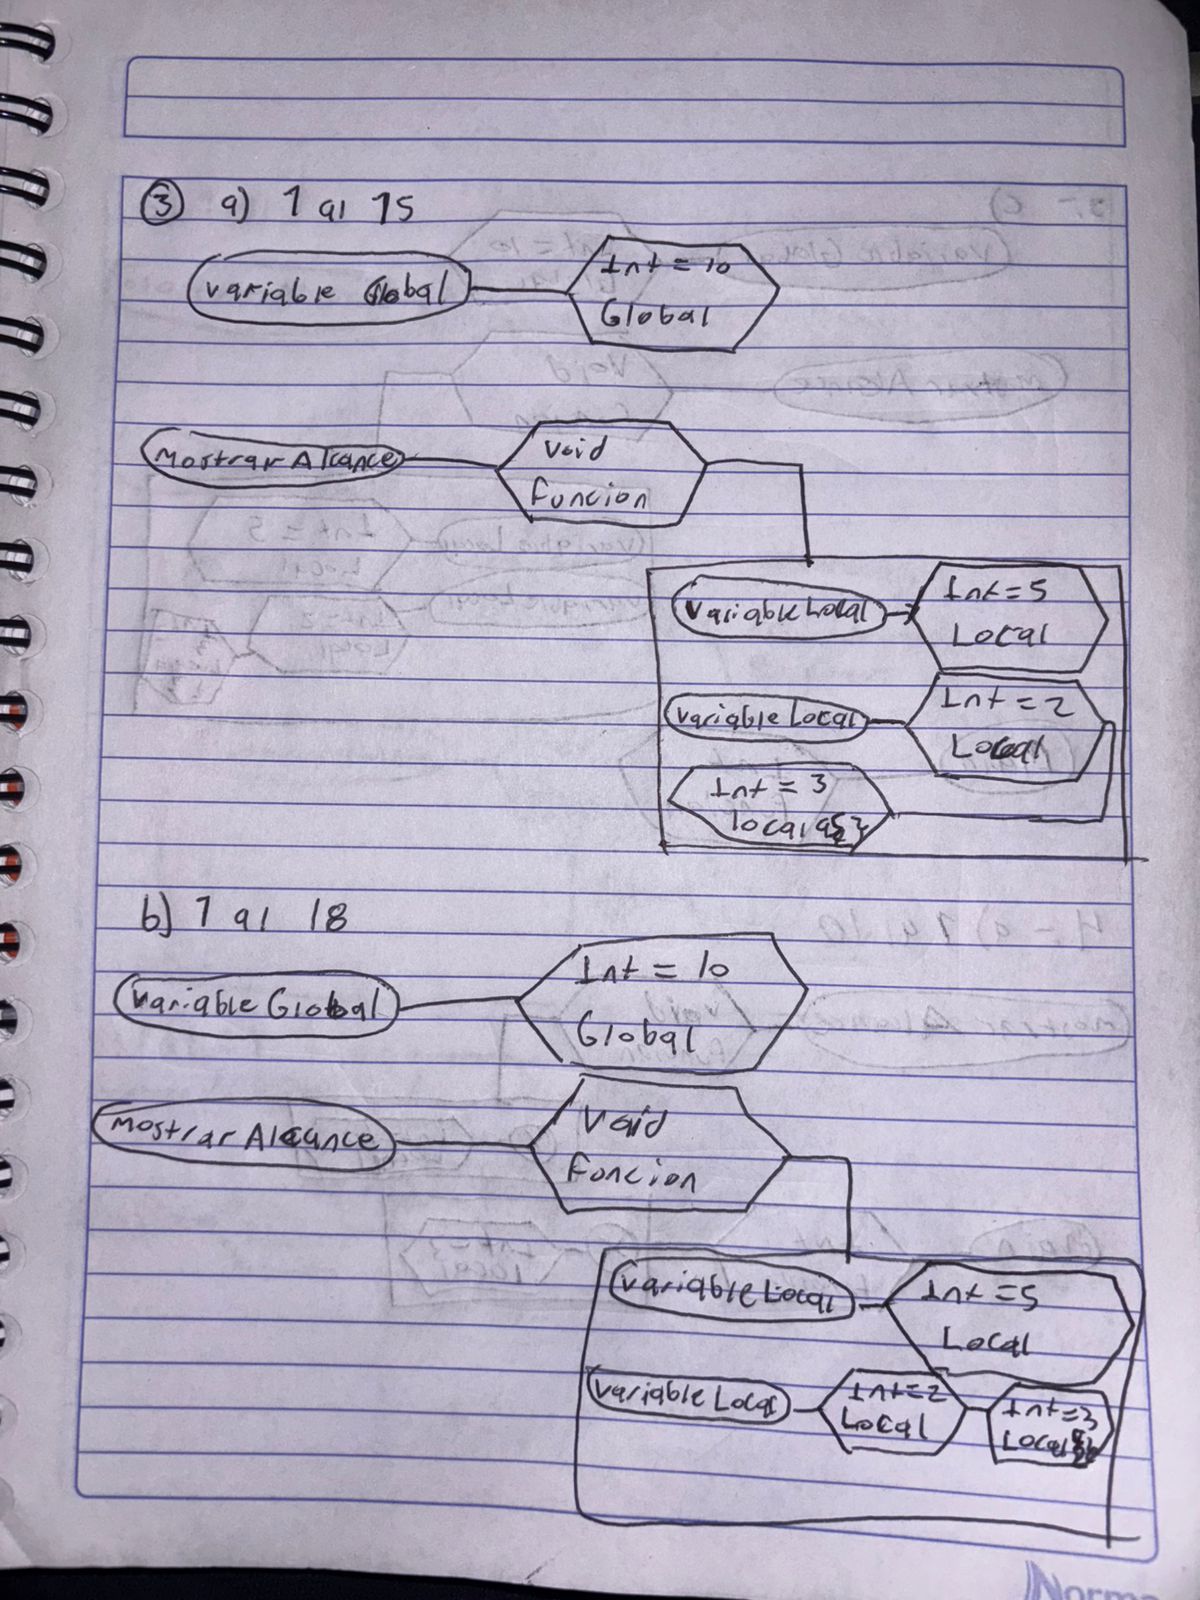 ③ a) 1 al 15
Variable Global
Int = 10
Global
Mostrar Alcance
Void
Funcion
Variable Local
Int=5
Local
Variable Local
Int = 2
Local
Int = 3
local
b) 1 al 18
Variable Global
Int = 10
Global
Mostrar Alcance
Void
Funcion
Variable Local
Int = 5
Local
Variable Local
Int=2
Local
Int=3
Local